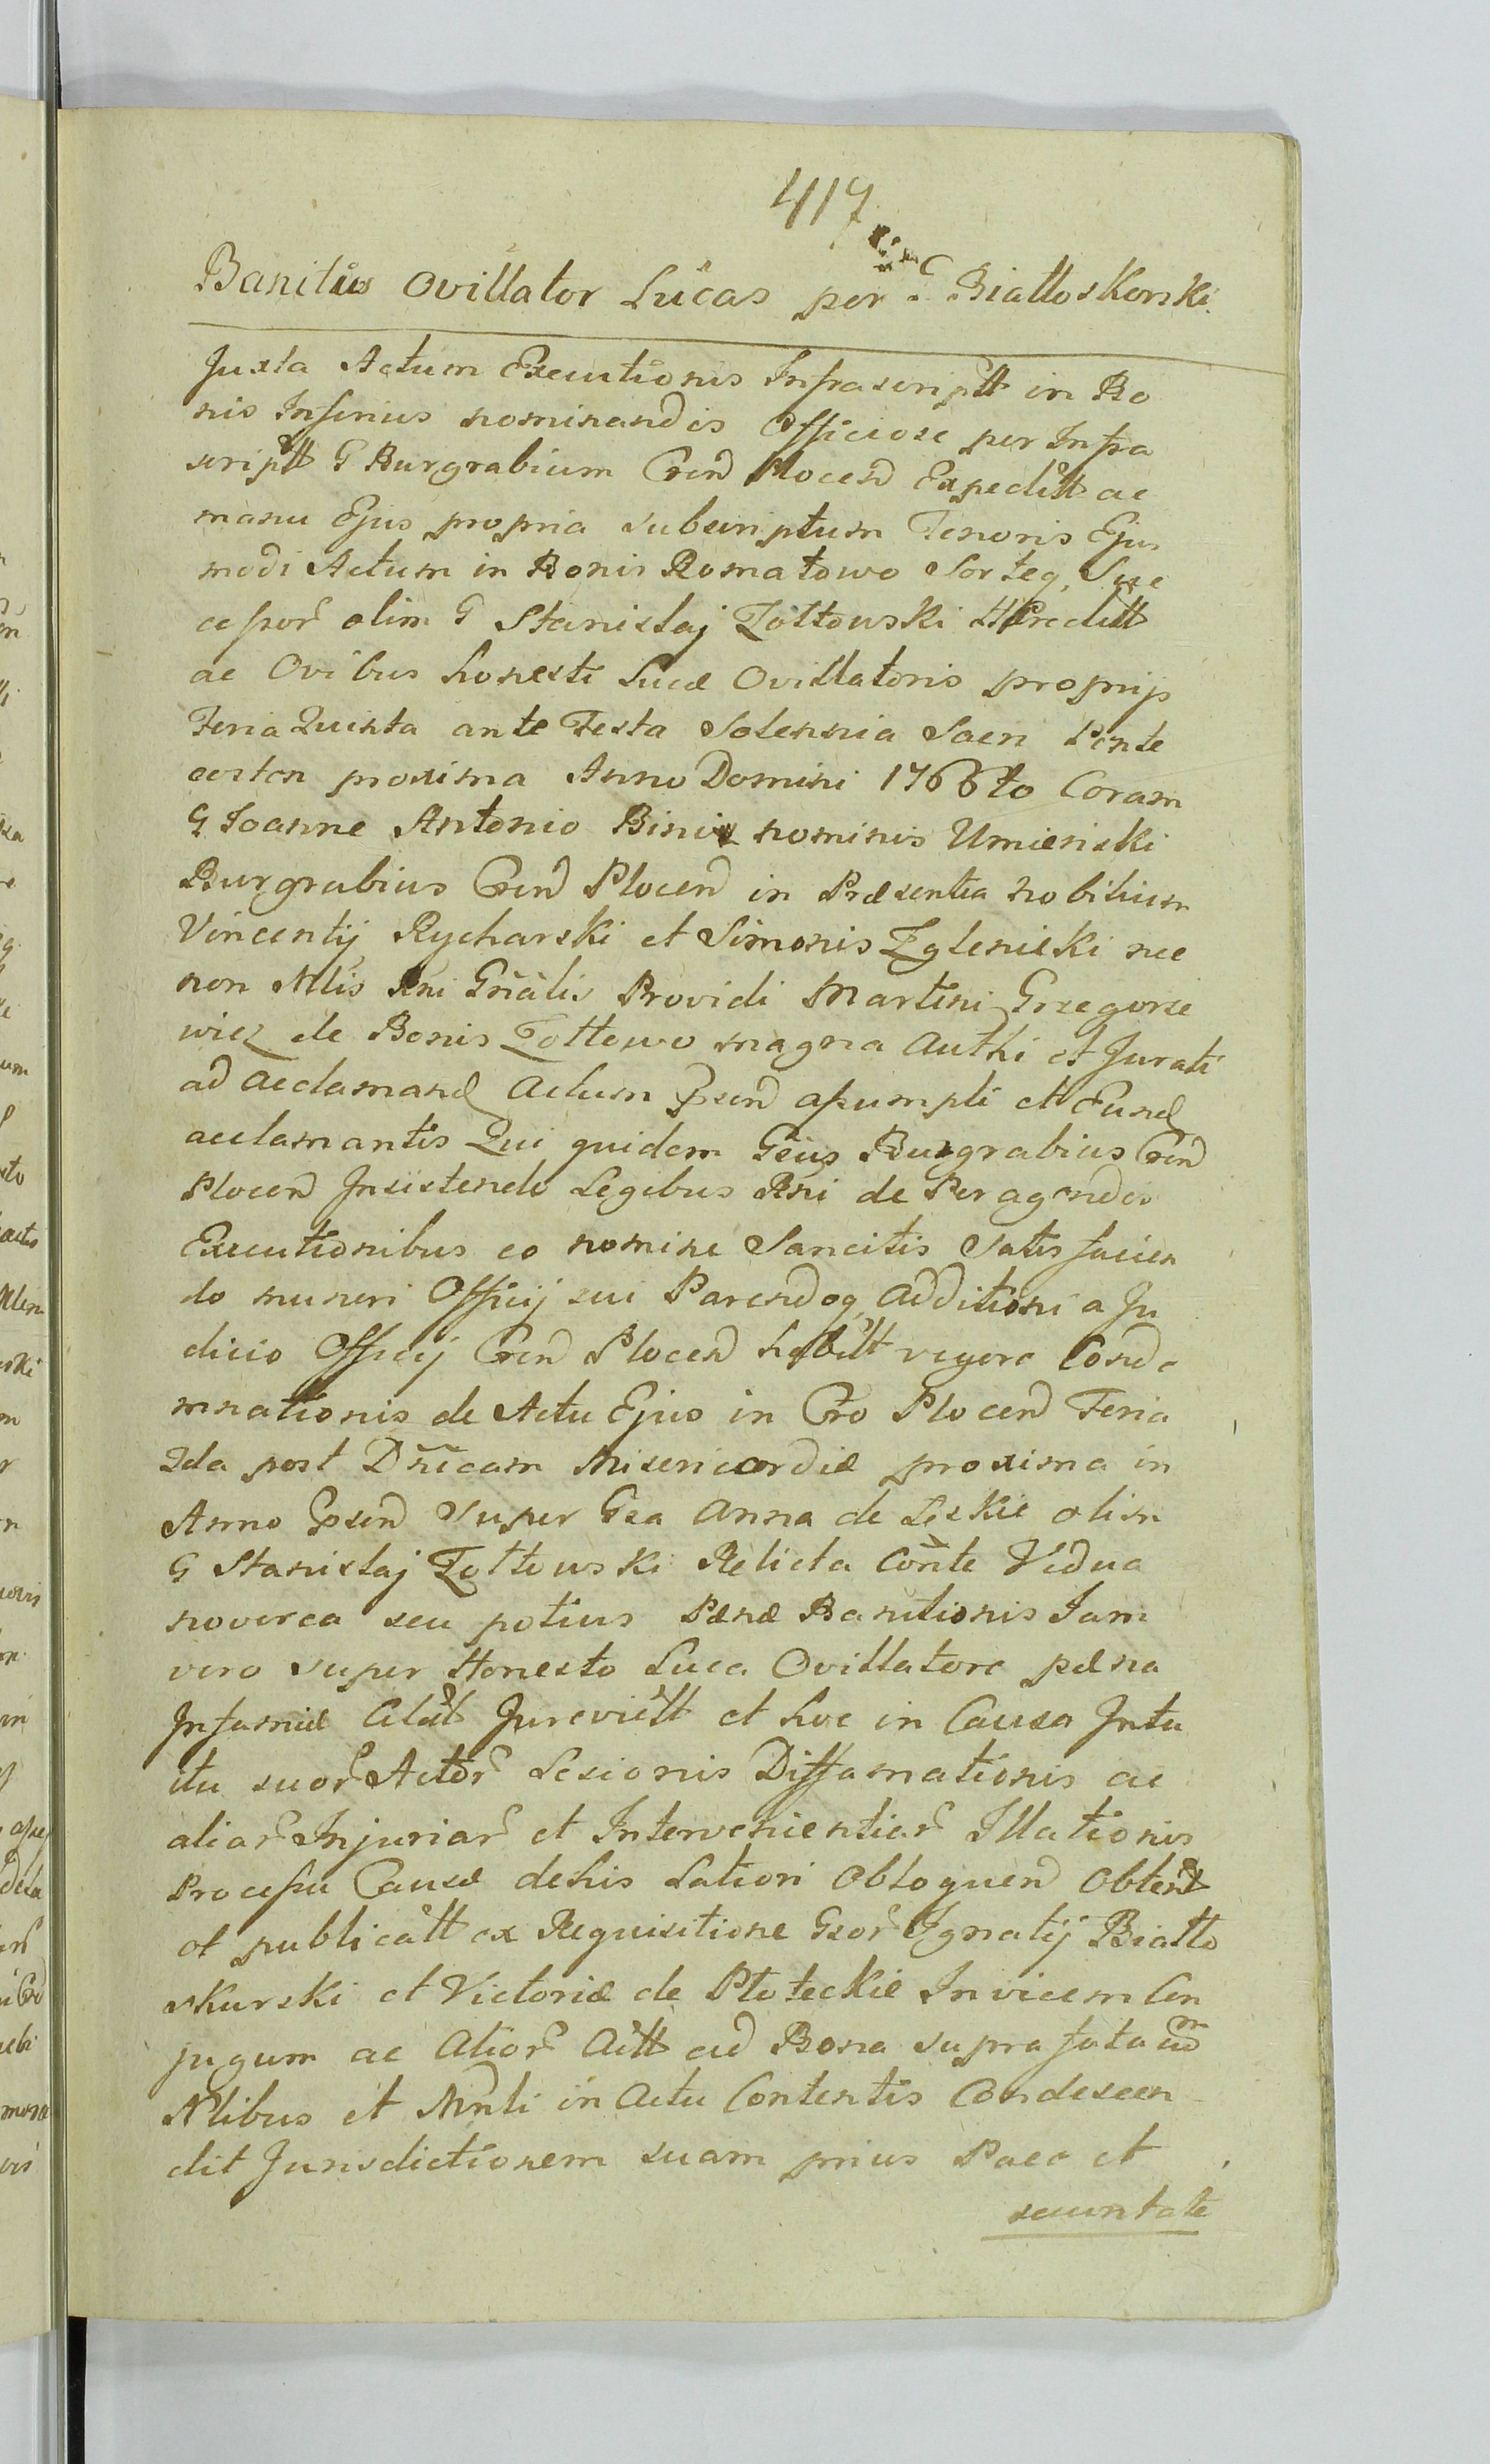 417
Banitus Ovillator Lucas per G. Białłoskorski.
Juxta Actum Executionis Infrascriptt in Bo
nis Inferius nominandis Officiose per Infra
scriptt G Burgrabium Cren Plocen Expeditt ac
manu Ejus propria subscriptum Tenoris Ejus
modi Actum in Bonis Romatowo Sorteq, Suc
cessor olim G Stanislaj Zołtowski HPreditt
ac Ovibus honesti Lucæ Ovillatoris proprijs
Feria Quinta ante Festa Solennia Sacri Pente
costen proxima Anno Domini 1766to Coram
G Joanne Antonio Binis nominis Umienski
Burgrabius Cren Plocen in Præsentia nobilium
Vincentij Rycharski et Simonis Zglenicki nec
non Mlis Rni Gnalis Providi Martini Grzegorze
wicz de Bonis Zołtowo magna Authi et Jurati
ad acclamand Actum Psen assumpti et Eund
acclamantis Qui quidem Gsus Burgrabius Cren
Plocen Insistendo Legibus Rni de Peragendis
Executionibus eo nomine Sancitis Satis facien
do muneri Officij sui Parendoq, Additioni a Ju
dicio Officij Cren Plocen habitt vigore Conde
mnationis de Actu Ejus in Cro Plocen Feria
2da post Dnicam Misericordiæ proxima in
Anno Psen Super Gsa Anna de Leskie olim
G Stanislaj Zołtowski Relicta Conte Vidua
noverca seu potius Pænæ Banitionis Jam
vero super Honesto Luca Ovillatore pæna
Infamiæ Alat Jurevictt et hoc in Causa Intu
itu suor Actor Lesionis Diffamationis ac
aliar Injuriar et Intervenientiar Illationis
Processu Causæ dehis Latiori Obloquen Obtent
et publicatt ex Requisitione Gsor Ignatij Białło
skurski et Victoriæ de Płoteckie Invicem Con
jugum ac Alior Actt ad Bona supra fata un
Nlibus et Mnli in Actu Contentis Condescen
dit Jurisdictionem suam prius Pace et
securitate